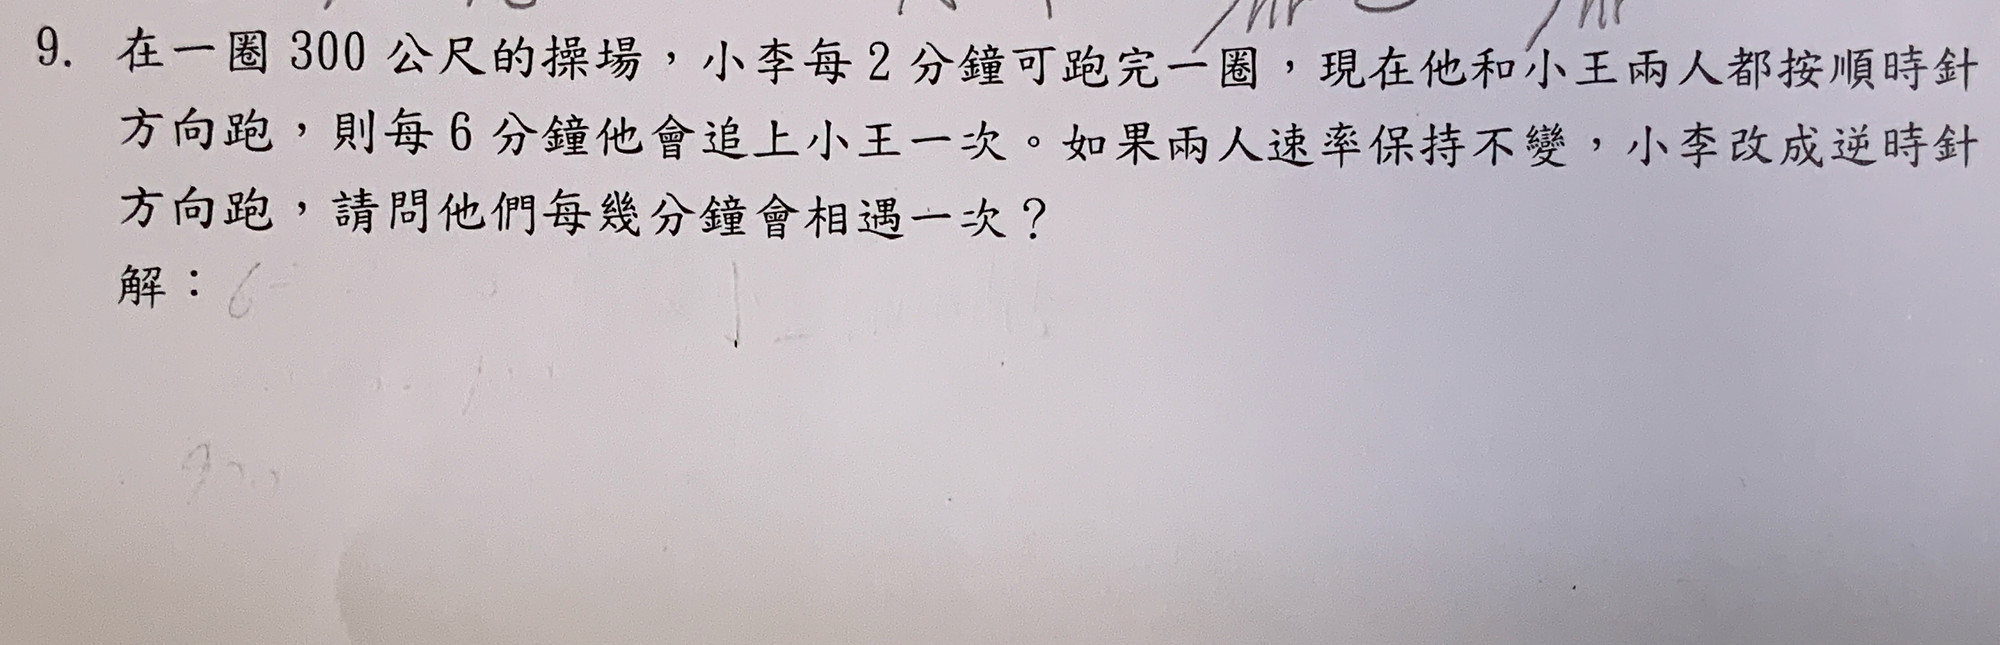 9. 在一圈 300 公尺的操場，小李每 2 分鐘可跑完一圈，現在他和小王兩人都按順時針
方向跑，則每 6 分鐘他會追上小王一次。如果兩人速率保持不變，小李改成逆時針
方向跑，請問他們每幾分鐘會相遇一次？
解：6